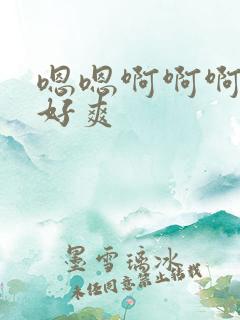 嗯嗯啊啊啊
好爽
墨雪璃冰
未经同意禁止转载